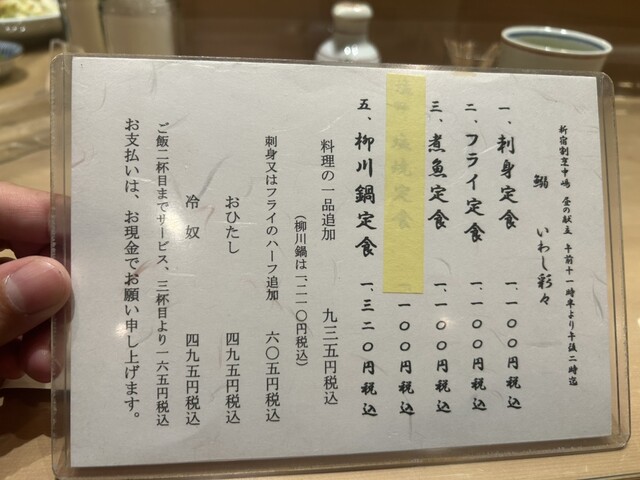 新宿割烹中嶋 昼の献立 午前十一時半より午後二時迄
鰯 いわし彩々
一、刺身定食 一、一〇〇円税込
二、フライ定食 一、一〇〇円税込
三、煮魚定食 一、一〇〇円税込
塩焼定食 一〇〇円税込
五、柳川鍋定食 一、三二〇円税込
料理の一品追加 九三五円税込
(柳川鍋は一、二一〇円税込)
刺身又はフライのハーフ追加 六〇五円税込
おひたし 四九五円税込
冷奴 四九五円税込
ご飯二杯目までサービス、三杯目より一六五円税込
お支払いは、お現金でお願い申し上げます。